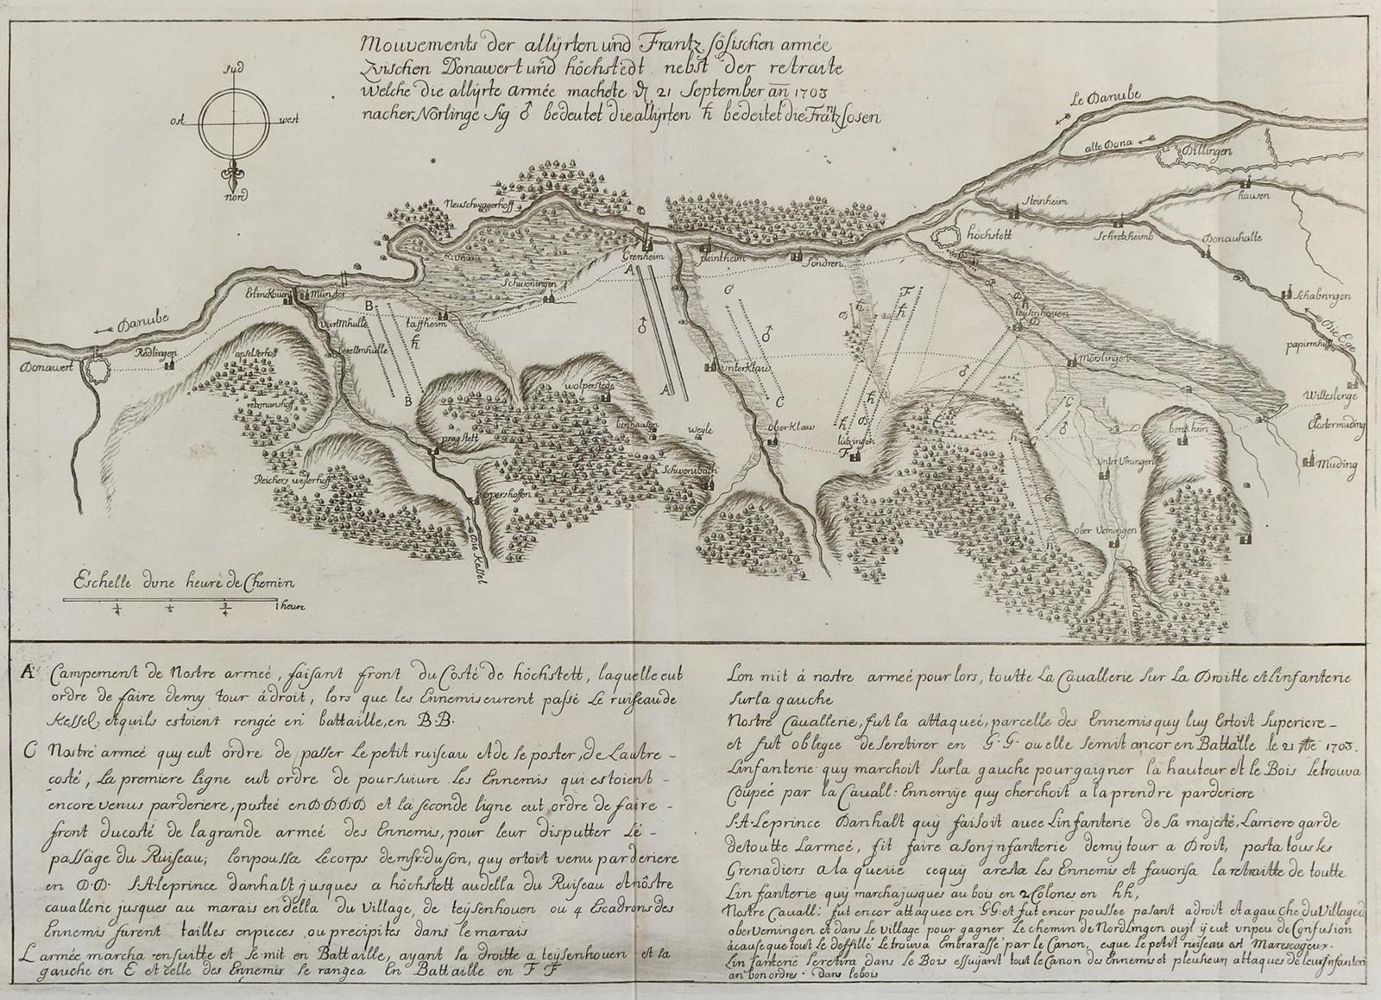 Mouvements der allÿrten und Frantzsösischen armée
Zvischen Donawert und höchstedt nebst der retraite
Welche die allÿrte armée machete 21 September an 1703
nacher Nörlinge Sig ♂ bedeutet die allÿrten ♄ bedeitet die Frantzsosen
sud
ost west
nord
Le Danube
alte Dona
Dillingen
Steinheim
hausen
höchstett
Schretzheimb
Donauhalte
Schabringen
Die Ege
papirmhull
Witteslenge
Clostermuding
Muding
Neuschwagerhoff
Grenheim
pleintheim
Sondren
Schweningen
Erlinckouen
Munster
taffheim
Danube
Donawert
Redlingen
vurtmhulle
A
B
C
F
♂
♄
teysenhouen
Mörslingen
unterklaw
oberklaw
lutzingen
wolperstede
wegle
Schwonebach
pragstett
opershoffen
Die Kessel
Reichers weslerhoff
retzmanshoff
berghein
unter Viningen
ober Veningen
Eschelle dune heure de Chemin
1/4 1/2 3/4 1 heure
A Campement de Nostre armeé, faisant front du Costé de höchstett, laquelle eut
ordre de faire demy tour a droit, lors que les Ennemis eurent passé Le ruiseau de
Kessel, et quils estoient rengée en battaille, en B.B.
C Nostre armeé quy eut ordre de passer Le petit ruiseau et de se poster, de Lautre -
costé, La premiere ligne eut ordre de poursuivre Les Ennemis qui estoient -
encore venus parderiere, postee en D D D D et la seconde ligne eut ordre de faire -
front du costé de la grande armeé des Ennemis, pour leur disputter Le -
passage du Ruiseau; lonpoussa Le corps de msr: duson, quy ertoit venu parderiere
en D.D. S.A. leprince danhalt jusques a höchstett audella du Ruiseau et nôstre
cauallerie jusques au marais en della du Village, de teysenhouen ou 4 Escadrons des
Ennemis furent tailles enpieces ou precipites dans le marais
L armée marcha ensuitte et se mit en Battaille, ayant la droitte a teysenhouen et la
gauche en E et celle des Ennemis se rangea En Battaille en F F
Lon mit á nostre armeé pour lors, toutte La Cauallerie sur La Droitte et Linfanterie
sur la gauche
Nostre Cauallerie, fut la attaqueé, parcelle des Ennemis quy luy Ertoit Superiere -
et fut obligee de seretirer en G.G. ou elle semit ancor en Battaille le 21 7bre 1703.
Linfanterie quy marchoit sur la gauche pour gaigner la hauteur et le Bois se trouva
Coupeé par la Cauall: Ennemije quy cherchoit a la prendre parderiere
S.A. Leprince Danhalt quÿ faisoit auee Linfanterie de sa majesté, Larriere garde
de toutte Larmeé, fit faire a son jnfanterie demÿ tour a Droit, posta tous les
Grenadiers a la queüe cequÿ aresta les Ennemis et fauorisa la retraitte de toutte
Linfanterie quy marcha jusques au bois en 2 Colones en hh,
Nostre Cauall: fut encor attaquee en GG et fut encor poussee pasant a droit et a gauche du Village d
oberveningen et dans le village pour gagner Le chemin de Nordlingen ou jl ÿ eut unpeu de Confusion
a cause que tout Le deffillé Le trouva Embarassé par le Canon, e que Le petit ruiseau est Marescageux.
Linfanterie seretira dans Le Bois essuyant tout le Canon des Ennemis et plusieurs attaques de leur jnfanteri
an bon ordres. dans le bois